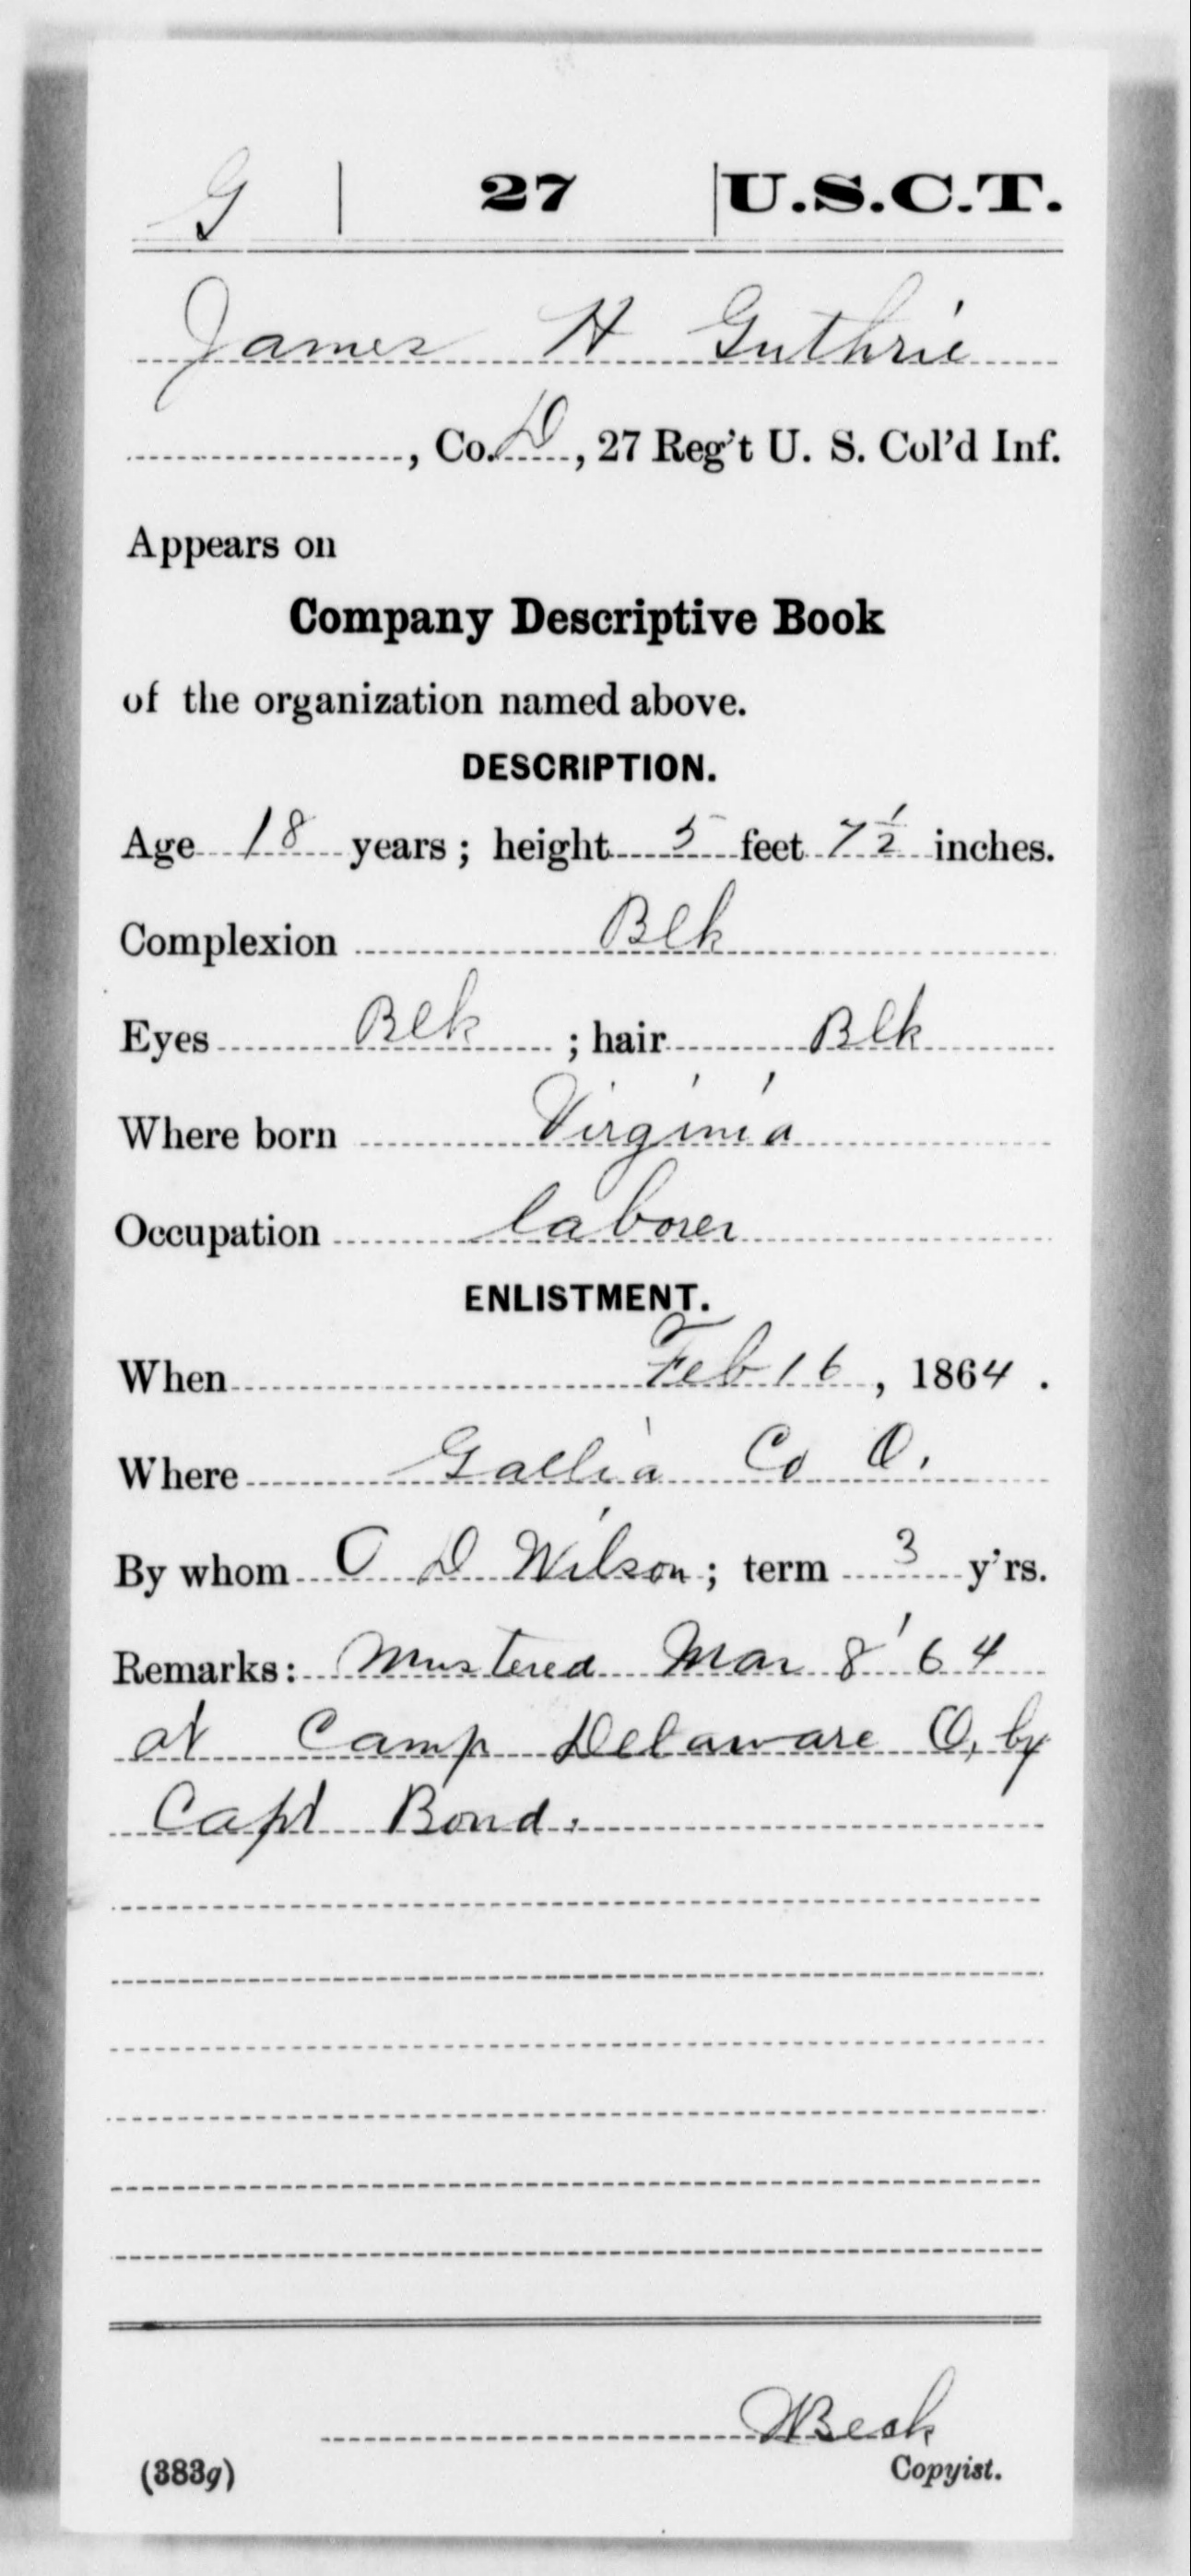 G | 27 | U.S.C.T.
James H Guthrie
, Co. D, 27 Reg't U. S. Col'd Inf.
Appears on
Company Descriptive Book
of the organization named above.
DESCRIPTION.
Age 18 years; height 5 feet 7 1/2 inches.
Complexion Blk
Eyes Blk ; hair Blk
Where born Virginia
Occupation laborer
ENLISTMENT.
When Feb 16, 1864.
Where Gallia Co O.
By whom O D Wilson; term 3 y'rs.
Remarks: Mustered Mar 8 '64
at Camp Delaware O, by
Capt Bond.
Copyist.
(383g)